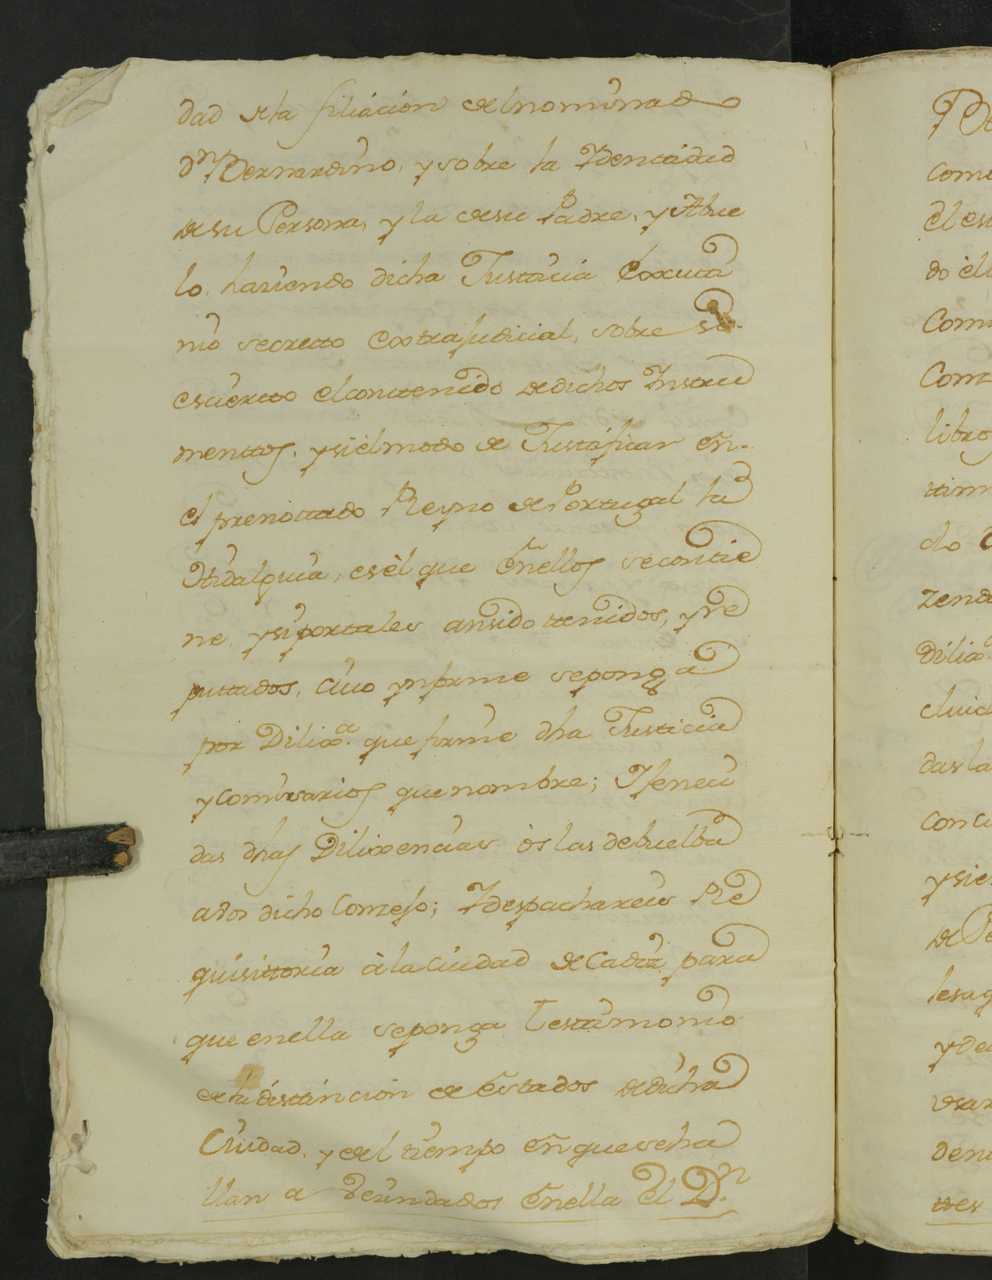 dad de la filiacion del nominado
Dn Bernardino, y sobre la Ydentidad
de su Persona, y la de su Padre, y Abue
lo, haziendo dicha Justicia Ynforme
mui secreto extrajudicial, sobre si
es cierto el contenido de dichos Ynstru
mentos, y si el modo de Justificar en
el prenotado Reyno de Portugal la
Hidalguia, es èl que en ellos se contie
ne y si por tales an sido tenidos, y re
puttados, cuio ynforme se ponga
por Dilixa. que firme dha Justicia
y Comisarios que nombre; Y feneci
das dhas Dilixencias òs las debuelba
a vos dicho Conzejo; Y despachareis Re
quisittoria à la Ciudad de Cadiz para
que en ella se ponga Testimonio
de la distincion de Estados de dicha
Ciudad, y del tiempo en que se ha
llan a vecindados en ella el Dn
Do
como
El es
do èl
Com
Con
libro
tim
do
zend
Dilix
cluid
das la
conc
y sie
de Pe
les a
y de
usar
den
tres